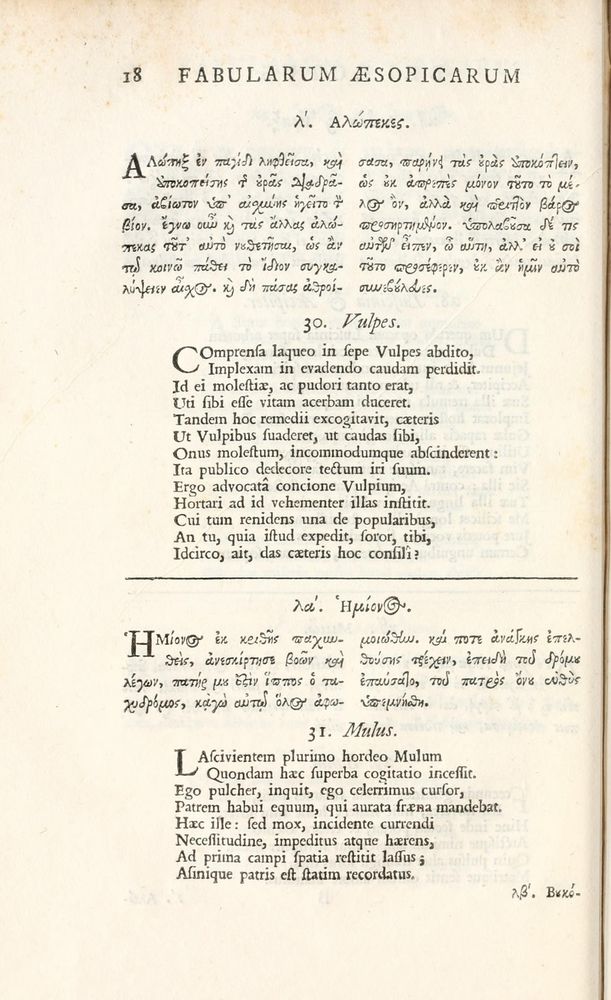 18 FABULARUM ÆSOPICARUM
λʹ. Αλώπεκες.
Αλώπηξ ἐν παγίδι ληφθεῖσα, καὶ
ἀποκοπείσης τ͂ ὐρᾶς Διαδρᾶ-
σα, ἀβίωτον ὑπ' αἰχύνης ἡγεῖτο τ͂
βίον. ἔγνω οὖν κὴ τὰς ἄλλας ἀλώ-
πεκας τοῦτ' αὐτὸ νουθετῆσαι, ὡς ἂν
τῷ κοινῷ πάθει τὸ ἴδιον συγκα-
λύψειεν αἶχος. κὴ δὴ πάσας ἀθροί-
σασα, παρῄνει τὰς οὐρὰς ἀποκόπτειν,
ὡς οὐκ ἀπρεπὲς μόνον τοῦτο τὸ μέ-
λος ὂν, ἀλλὰ καὶ περιττὸν βάρος
προσηρτημένον. ὑπολαβοῦσα δέ τις
αὐτῶν εἶπεν, ὦ αὕτη, ἀλλ' εἰ οὐ σοὶ
τοῦτο προσέφερεν, οὐκ ἂν ἡμῖν αὐτὸ
συνεβούλευες.
30. Vulpes.
COmprensa laqueo in sepe Vulpes abdito,
Implexam in evadendo caudam perdidit.
Id ei molestiæ, ac pudori tanto erat,
Uti sibi esse vitam acerbam duceret.
Tandem hoc remedii excogitavit, cæteris
Ut Vulpibus suaderet, ut caudas sibi,
Onus molestum, incommodumque abscinderent:
Ita publico dedecore tectum iri suum.
Ergo advocatâ concione Vulpium,
Hortari ad id vehementer illas institit.
Cui tum renidens una de popularibus,
An tu, quia istud expedit, soror, tibi,
Idcirco, ait, das cæteris hoc consilî?
λαʹ. Ἡμίονος.
ἩΜίονος ἐκ κριθῆς παχυν-
θεὶς, ἀνεσκίρτησε βοῶν καὶ
λέγων, πατήρ μου ἐστὶν ἵππος ὁ τα-
χυδρόμος, κᾀγὼ αὐτῷ ὅλος ἀφω-
μοιώθην. καί ποτε ἀνάγκης ἐπελ-
θούσης τρέχειν, ἐπειδὴ τοῦ δρόμου
ἐπαύσατο, τοῦ πατρὸς ὄνου εὐθὺς
ὑπεμνήσθη.
31. Mulus.
LAscivientem plurimo hordeo Mulum
Quondam hæc superba cogitatio incessit.
Ego pulcher, inquit, ego celerrimus cursor,
Patrem habui equum, qui aurata fræna mandebat.
Hæc ille: sed mox, incidente currendi
Necessitudine, impeditus atque hærens,
Ad prima campi spatia restitit lassus;
Asinique patris est statim recordatus.
λβʹ. Βουκό-